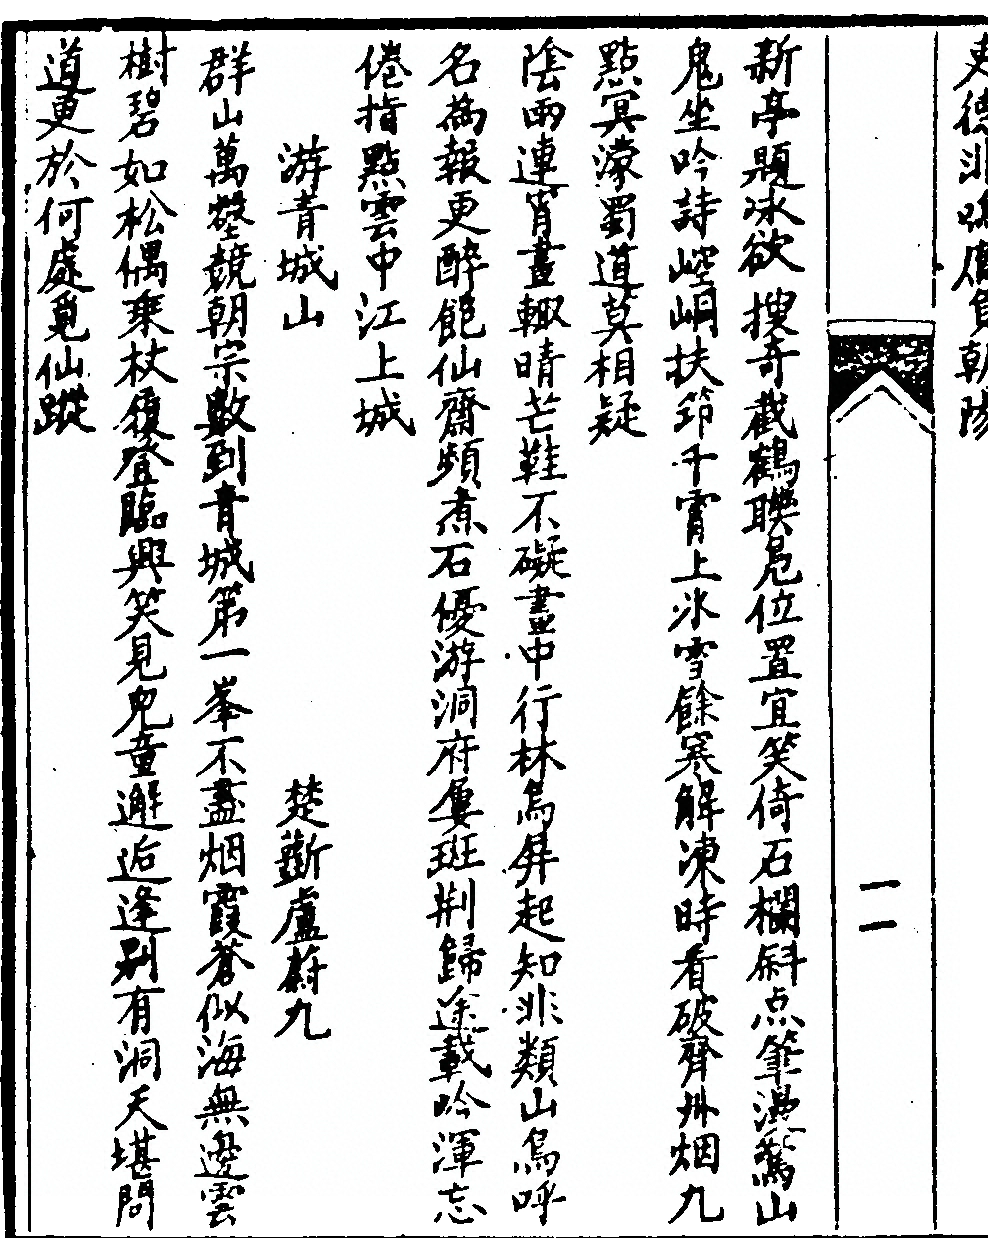 新亭題冰欲搜奇截鶴聯凫位置宜笑倚石欄斜点筆漫驚山
鬼坐吟詩崆峒扶筇千霄上冰雪餘寒解凍時看破齊州烟九
點冥濛蜀道莫相疑
陰雨連宵晝輙晴芒鞋不礙畫中行林烏屏起知非類山鳥呼
名為報更醉飽仙齋頻煮石優游洞府屢班荆歸途載吟渾忘
倦指點雲中江上城
游青城山
楚蘄盧蔚九
群山萬壑競朝宗數到青城第一峯不盡烟霞蒼似海無邊雲
樹碧如松偶乘杖履登臨興笑見兒童邂逅逢別有洞天堪問
道更於何處覓仙蹤